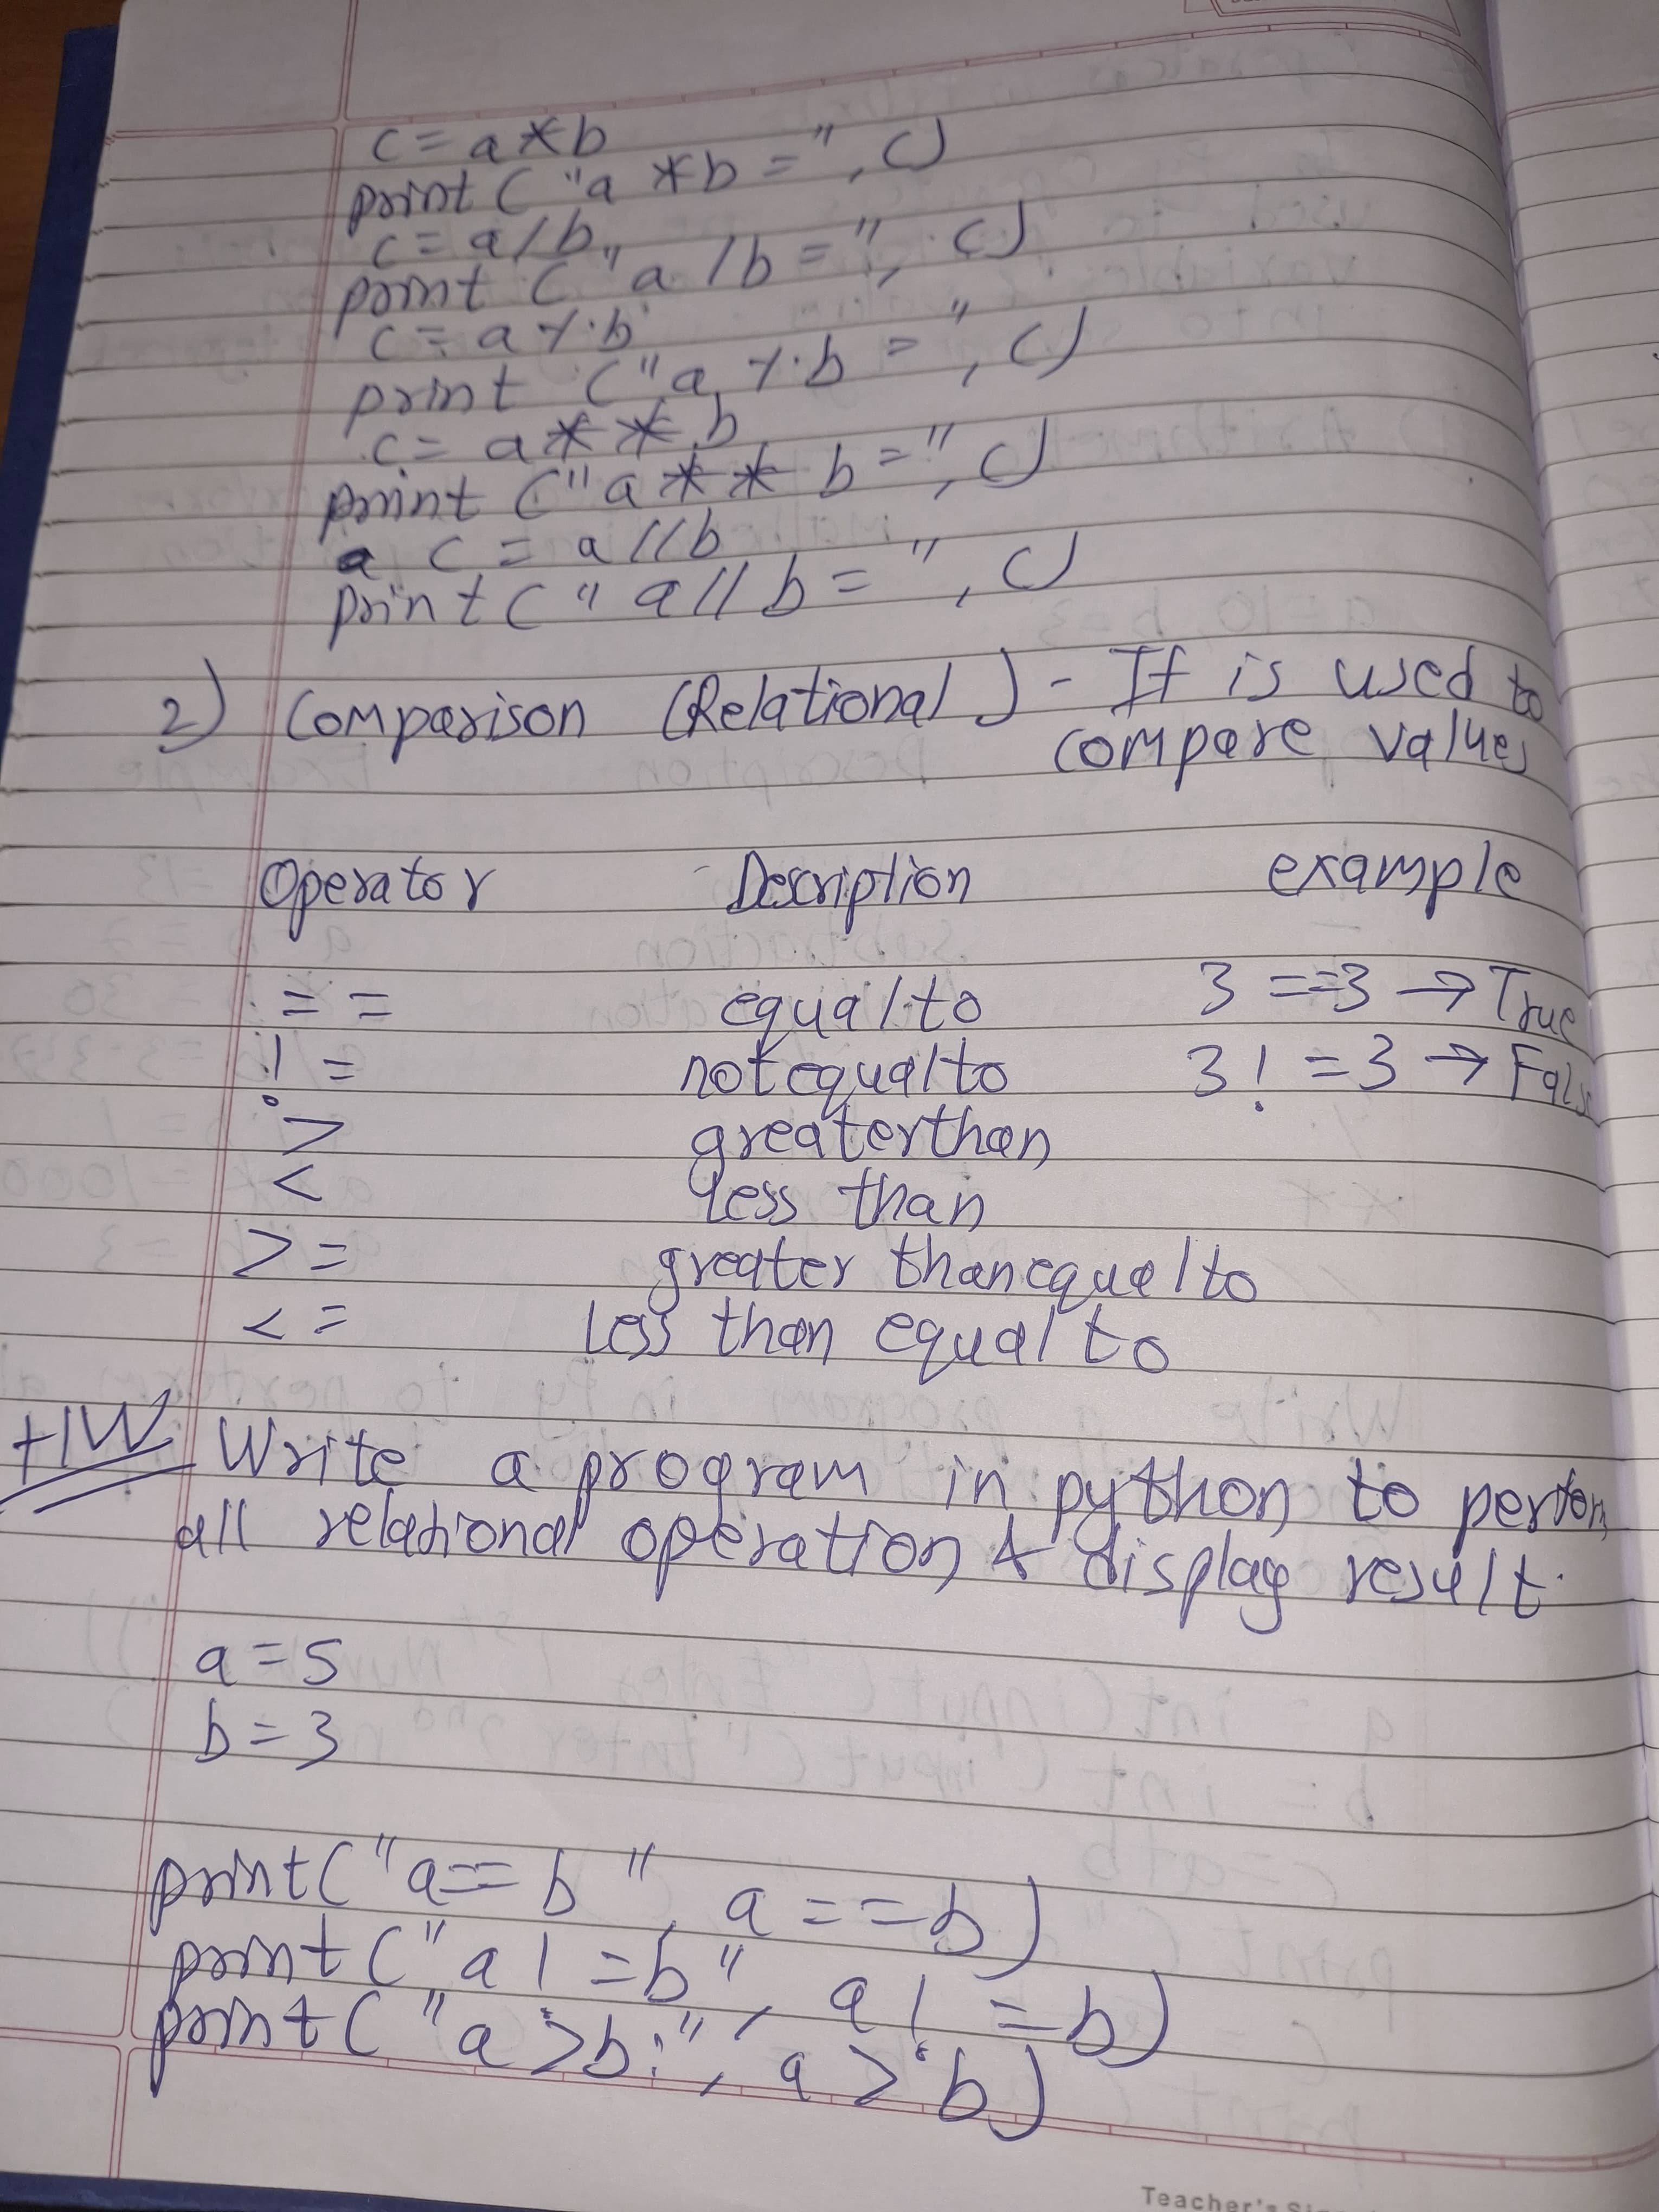 c = a*b
print ("a *b = ", c)
c = a/b
print ("a /b = ", c)
c = a%b
print ("a %b = ", c)
c = a**b
print ("a** b = ", c)
c = a//b
print (" a// b = ", c)
2) Comparison (Relational) - It is used to
compare values
Operator Description example
== equal to 3 ==3 → True
!= not equal to 3 != 3 → False
> greater than
< less than
>= greater than equal to
<= less than equal to
HW Write a program in python to perform
all relational operation & display result.
a = 5
b = 3
print("a== b ", a ==b)
print ("a !=b", a != b)
print ("a >b:", a > b)
Teacher's